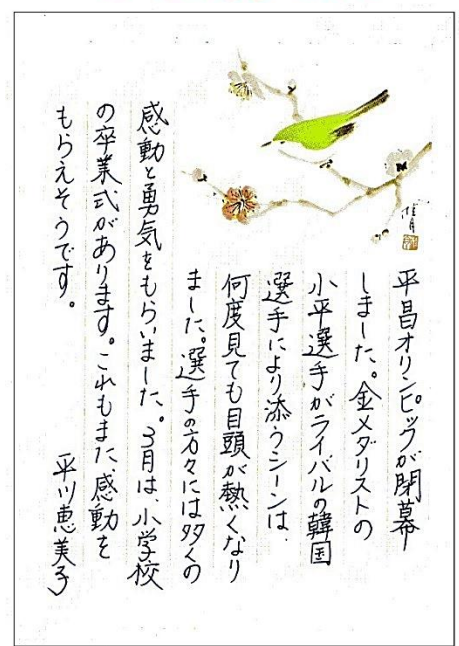 平昌オリンピックが閉幕
しました。金メダリストの
小平選手がライバルの韓国
選手により添うシーンは、
何度見ても目頭が熱くなり
ました。選手の方々には多くの
感動と勇気をもらいました。3月は、小学校
の卒業式があります。これもまた、感動を
もらえそうです。
平川恵美子